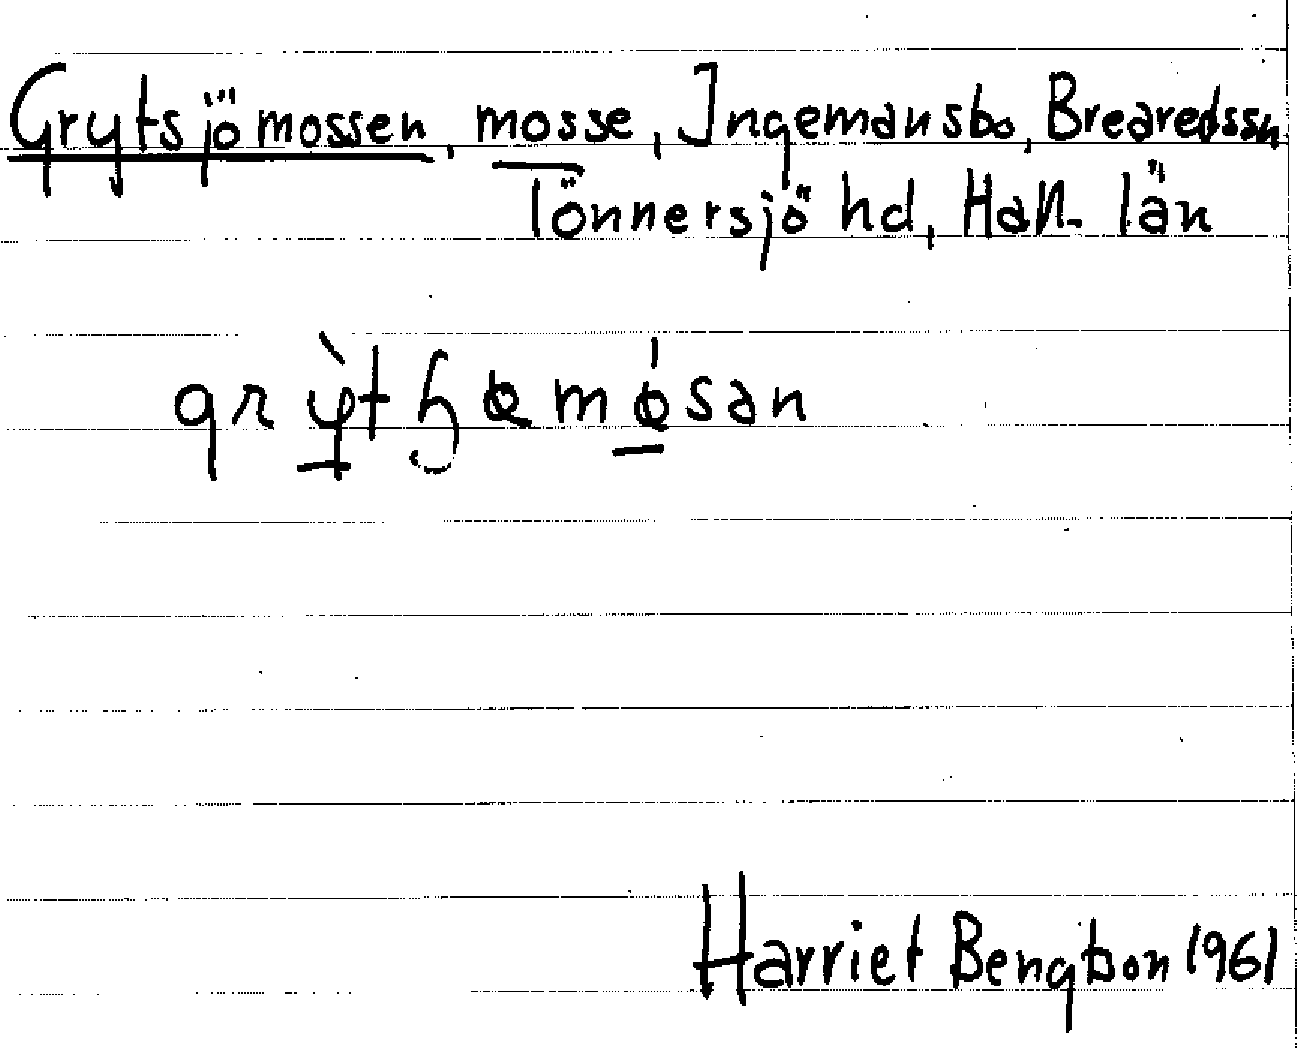 Grytsjömossen, mosse, Ingemansbo, Brearedssn
Tönnersjö hd, Hall. län
Harriet Bengtson 1961